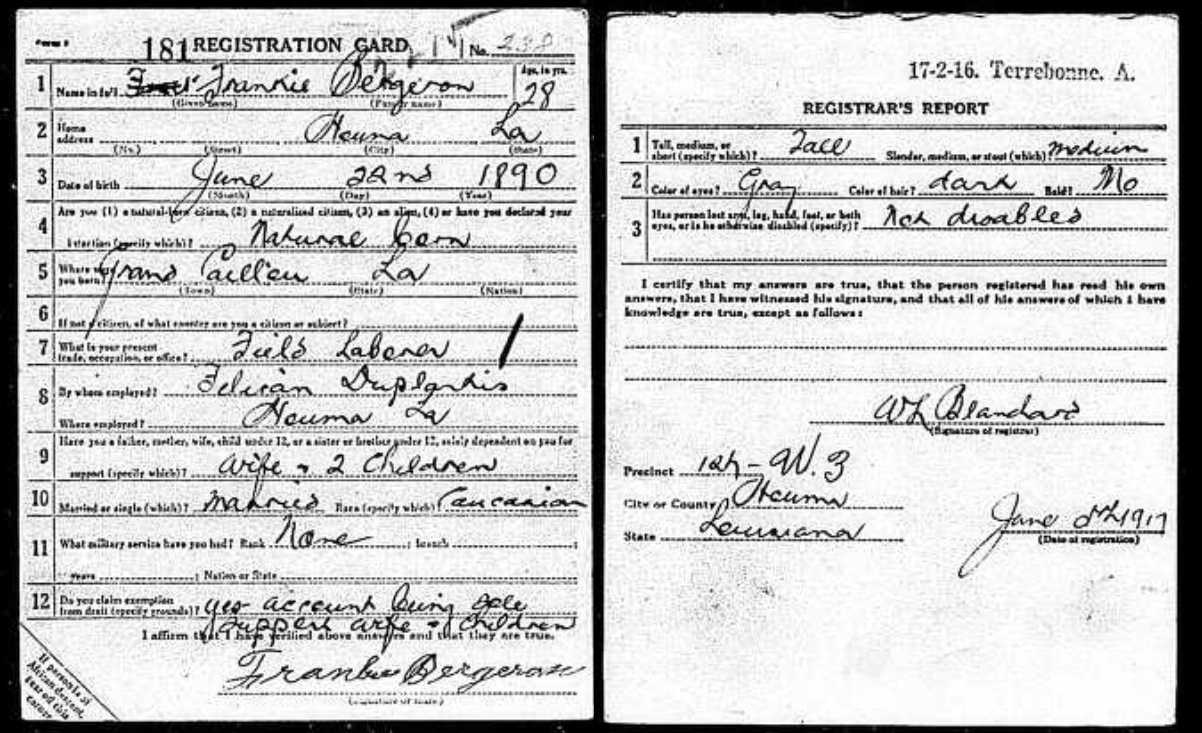 181 REGISTRATION CARD No. 238
1 Name in full Frankie Bergeron Age, in yrs. 28
(Given name) (Family name)
2 Home address Houma La
(No.) (Street) (City) (State)
3 Date of birth June 22nd 1890
(Month) (Day) (Year)
4 Are you (1) a natural-born citizen, (2) a naturalized citizen, (3) an alien, (4) or have you declared your
intention (specify which)? Natural born
5 Where were you born? Grand Caillou La
(Town) (State) (Nation)
6 If not a citizen, of what country are you a citizen or subject?
7 What is your present trade, occupation, or office? Field Laborer
8 By whom employed? Felician Duplantis
Where employed? Houma La
9 Have you a father, mother, wife, child under 12, or a sister or brother under 12, solely dependent on you for
support (specify which)? wife & 2 Children
10 Married or single (which)? Married Race (specify which)? Caucasian
11 What military service have you had? Rank None ; branch ;
years ; Nation or State
12 Do you claim exemption from draft (specify grounds)? yes account being sole
support wife & children
I affirm that I have verified above answers and that they are true.
Frankie Bergeron
(Signature or mark)
If person is of
African descent,
tear off this
corner
17-2-16. Terrebonne. A.
REGISTRAR'S REPORT
1 Tall, medium, or short (specify which)? Tall Slender, medium, or stout (which)? medium
2 Color of eyes? Gray Color of hair? dark Bald? No
3 Has person lost arm, leg, hand, foot, or both
eyes, or is he otherwise disabled (specify)? Not disabled
I certify that my answers are true, that the person registered has read his own
answers, that I have witnessed his signature, and that all of his answers of which I have
knowledge are true, except as follows:
WL Blanchard
(Signature of registrar)
Precinct W. 3
City or County Houma
State Louisiana
June 5th 1917
(Date of registration)